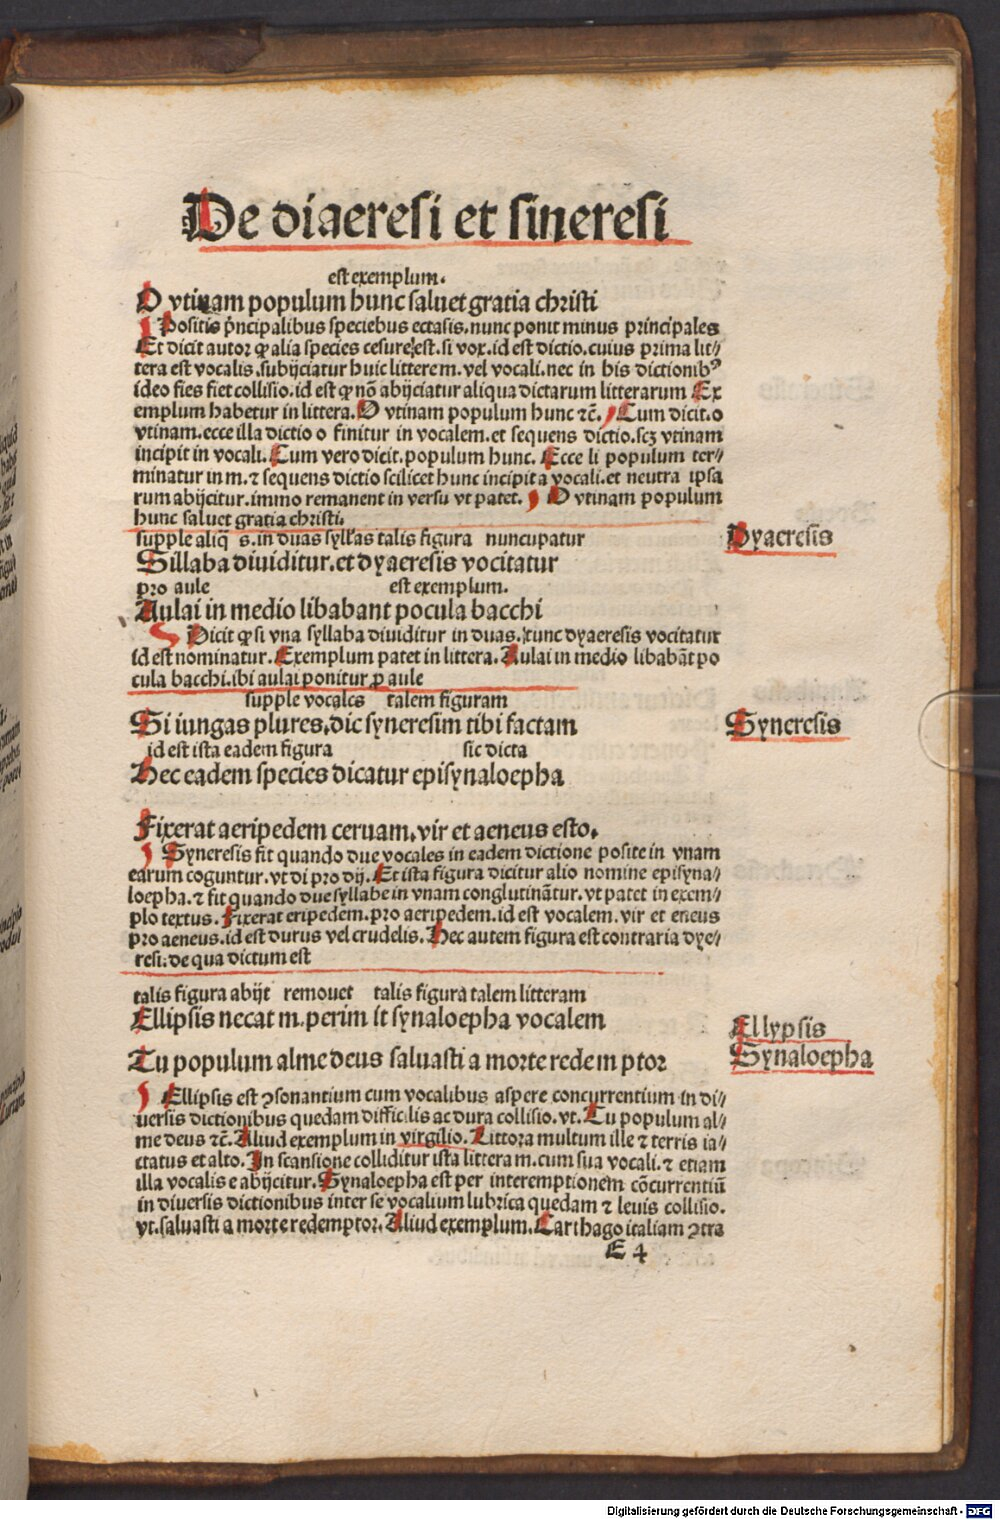 De diaeresi et sineresi
est exemplum.
O vtinam populum hunc saluet gratia christi
Positis p̄ncipalibus speciebus ectasis. nunc ponit minus principales
Et dicit autor ꝙ alia species cesure est. si vox. id est dictio. cuius prima lit⸗
tera est vocalis. subijciatur huic littere m. vel vocali. nec in his dictionibꝰ
ideo fies fiet collisio. id est ꝙ nō abijciatur aliqua dictarum litterarum Ex
emplum habetur in littera. O vtinam populum hunc ⁊c̄. Cum dicit. o
vtinam. ecce illa dictio o finitur in vocalem. et sequens dictio. scꝫ vtinam
incipit in vocali. Cum vero dicit. populum hunc. Ecce li populum ter⸗
minatur in m. ⁊ sequens dictio scilicet hunc incipit a vocali. et neutra ipsa
rum abijcitur. immo remanent in versu vt patet. O vtinam populum
hunc saluet gratia christi.
supple aliq̄ s. in duas syll'as talis figura nuncupatur
Dyaeresis
Sillaba diuiditur. et dyaeresis vocitatur
pro aule est exemplum.
Aulai in medio libabant pocula bacchi
Dicit ꝙ si vna syllaba diuiditur in duas. tunc dyaeresis vocitatur
id est nominatur. Exemplum patet in littera. Aulai in medio libabāt po
cula bacchi. ibi aulai ponitur ꝓ aule
supple vocales talem figuram
Si iungas plures, dic syneresim tibi factam
Syneresis
id est ista eadem figura sic dicta
Hec eadem species dicatur episynaloepha
Fixerat aeripedem ceruam, vir et aeneus esto.
Syneresis fit quando due vocales in eadem dictione posite in vnam
earum coguntur. vt di pro dij. Et ista figura dicitur alio nomine episyna⸗
loepha. ⁊ fit quando due syllabe in vnam conglutinātur. vt patet in exem⸗
plo textus. Fixerat eripedem. pro aeripedem. id est vocalem. vir et eneus
pro aeneus. id est durus vel crudelis. Hec autem figura est contraria dye⸗
resi. de qua dictum est
talis figura abijt remouet talis figura talem litteram
Ellipsis necat m. perim it synaloepha vocalem
Ellypsis
Synaloepha
Tu populum alme deus saluasti a morte redem ptor
Ellipsis est ꝯsonantium cum vocalibus aspere concurrentium in di⸗
uersis dictionibus quedam difficilis ac dura collisio. vt. Tu populum al⸗
me deus ⁊c̄. Aliud exemplum in virgilio. Littora multum ille ⁊ terris ia⸗
ctatus et alto. In scansione colliditur ista littera m. cum sua vocali. ⁊ etiam
illa vocalis e abijcitur. Synaloepha est per interemptionem cōcurrentiū
in diuersis dictionibus inter se vocalium lubrica quedam ⁊ leuis collisio.
vt. saluasti a morte redemptor. Aliud exemplum. Carthago italiam ꝯtra
E 4
Digitalisierung gefördert durch die Deutsche Forschungsgemeinschaft - DFG